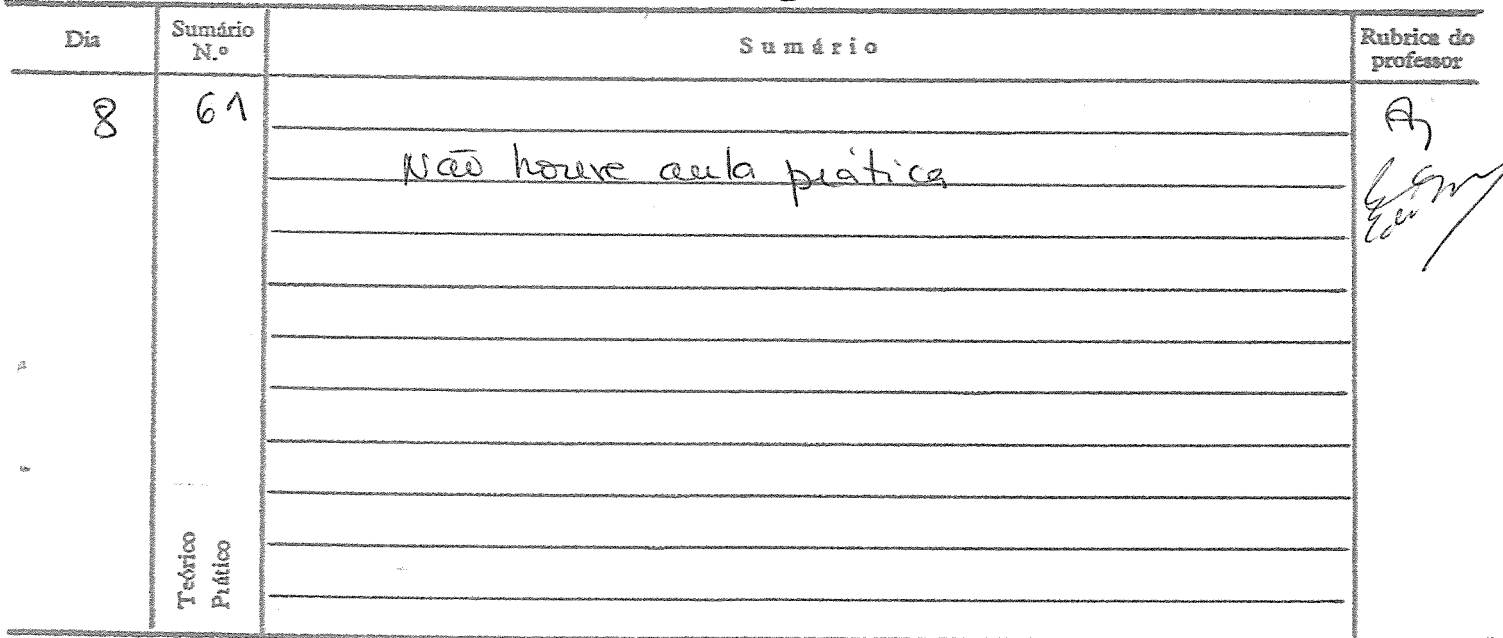 Dia Sumário N.º Sumário Rubrica do professor
8 61
Não houve aula prática
Teórico
Prático